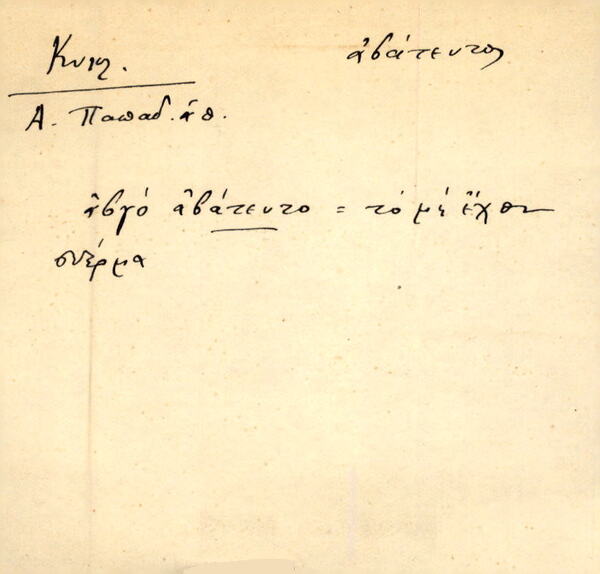 ἀβάτευτος
Α. Παπαδ.
ἀβγό ἀβάτευτο = τό μή ἔχον
σπέρμα